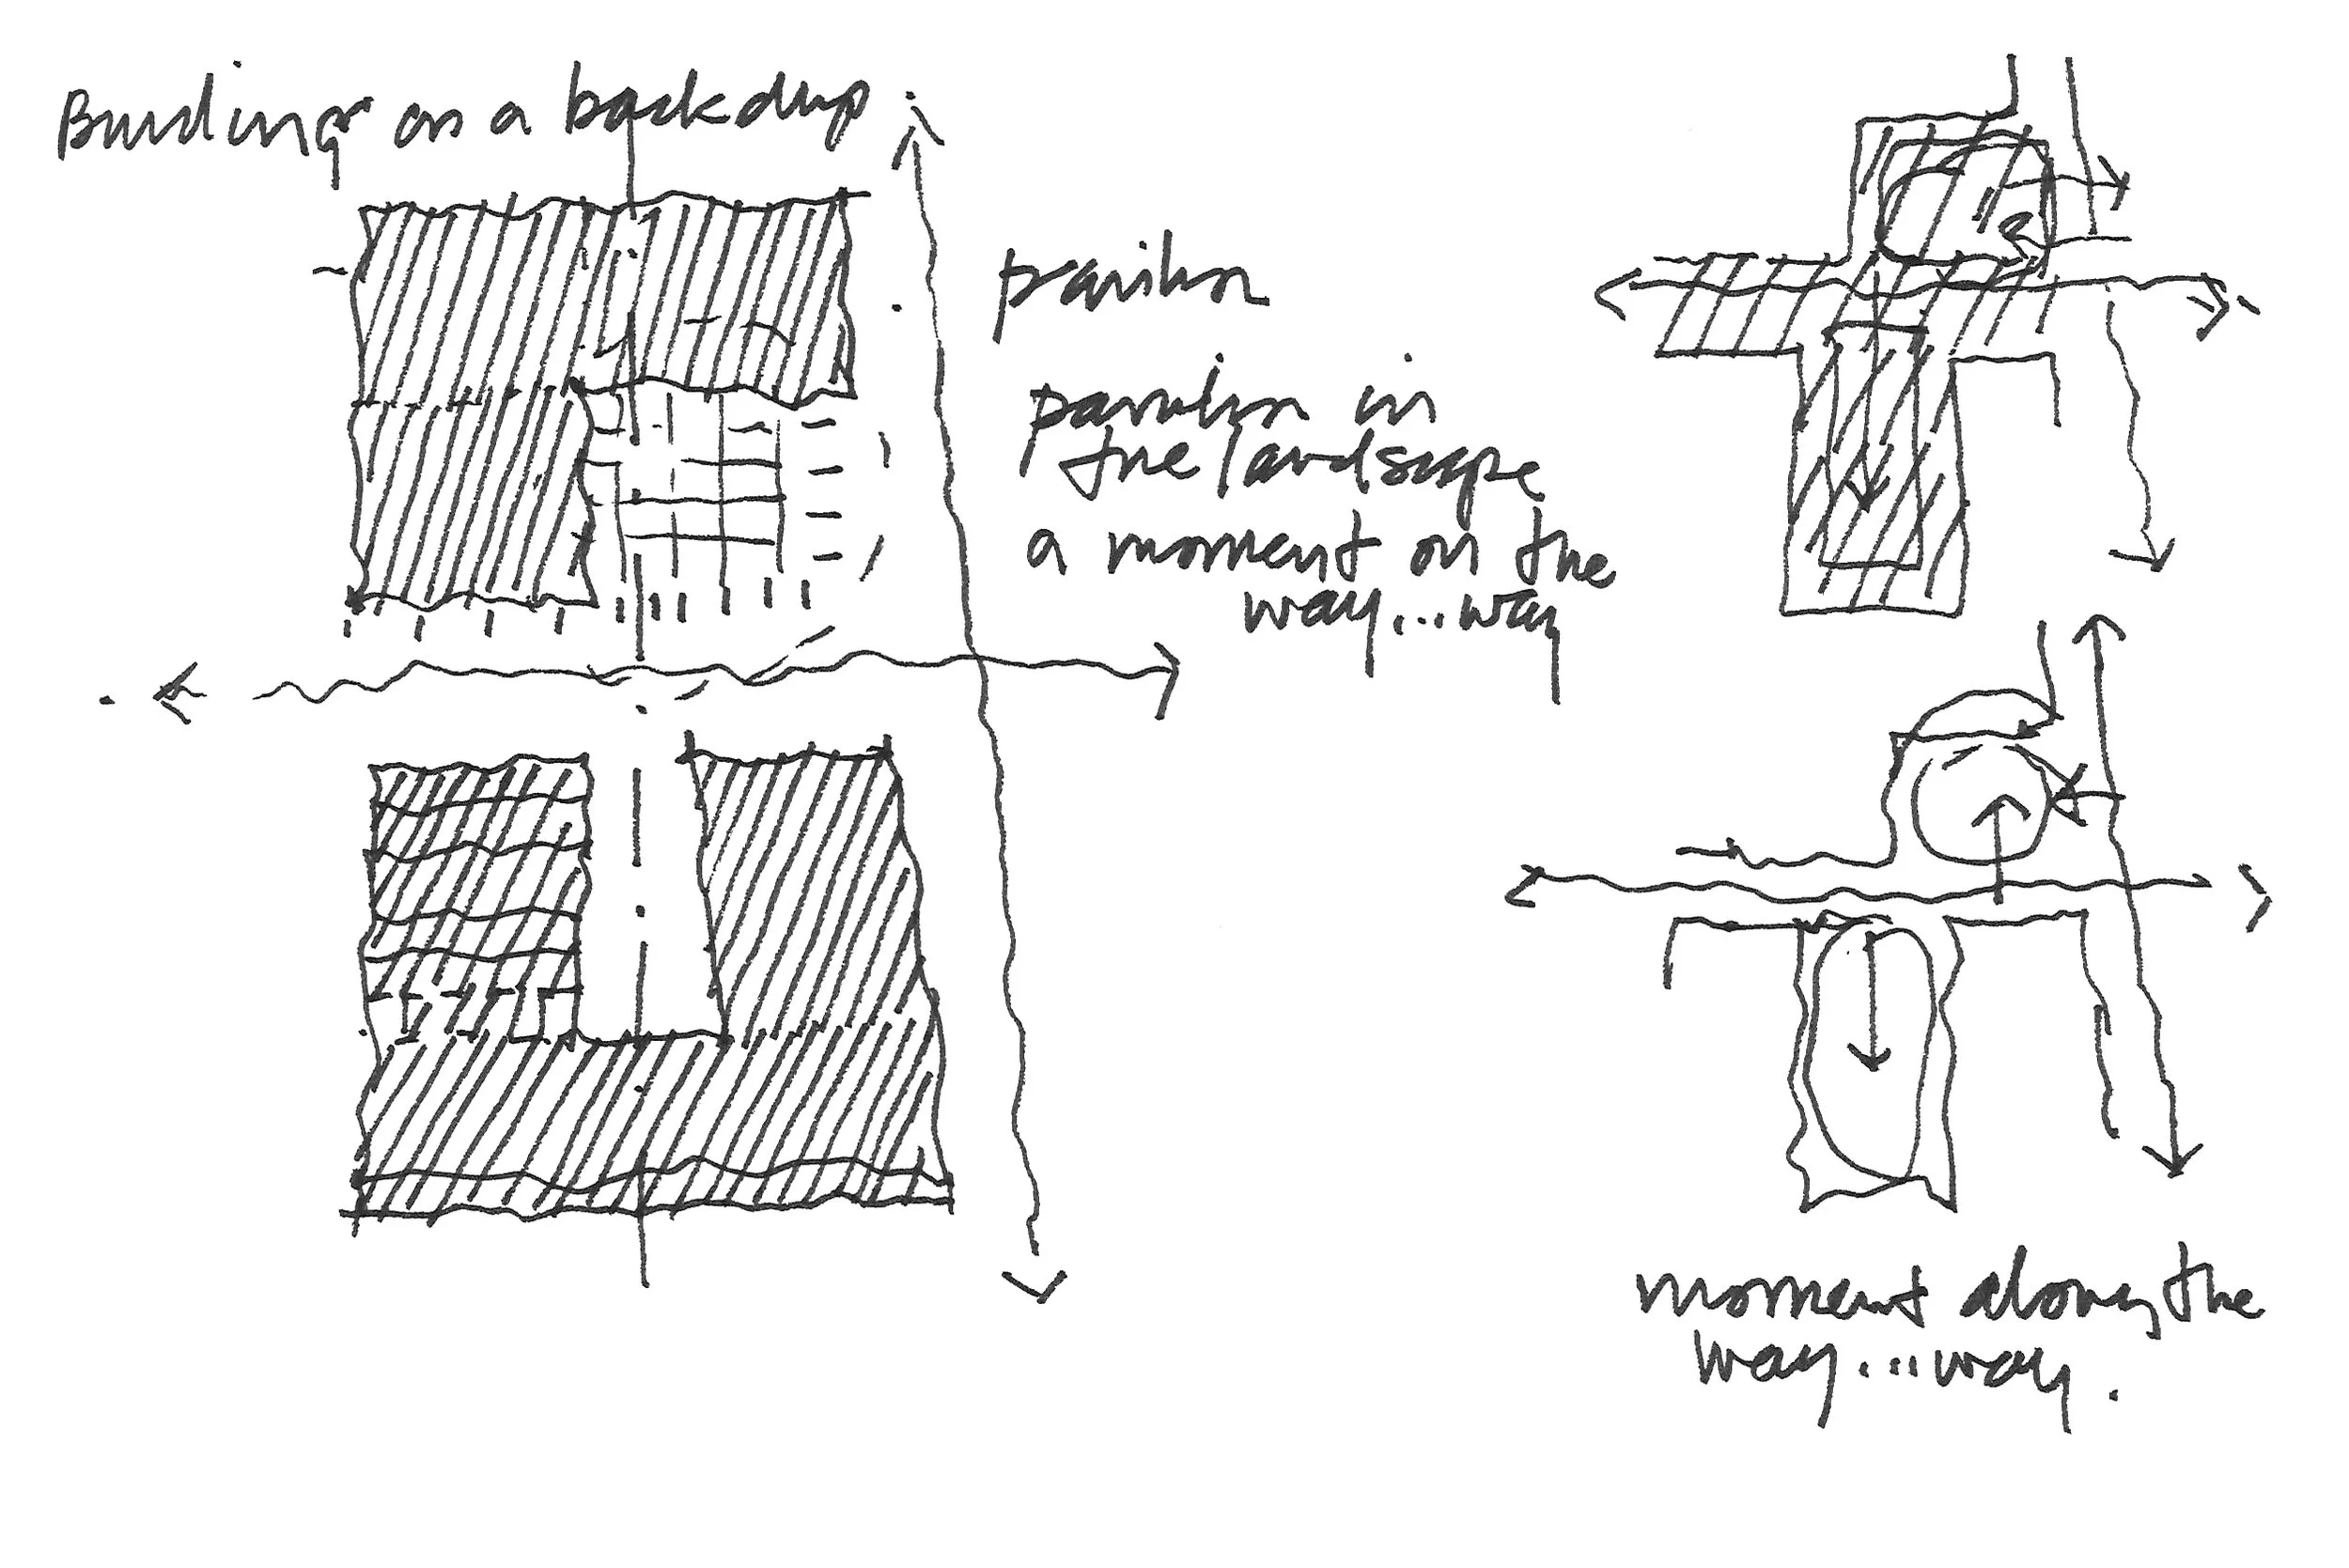 Building as a backdrop
pavilion
pavilion in
the landscape
a moment on the
way...way
moment along the
way...way.